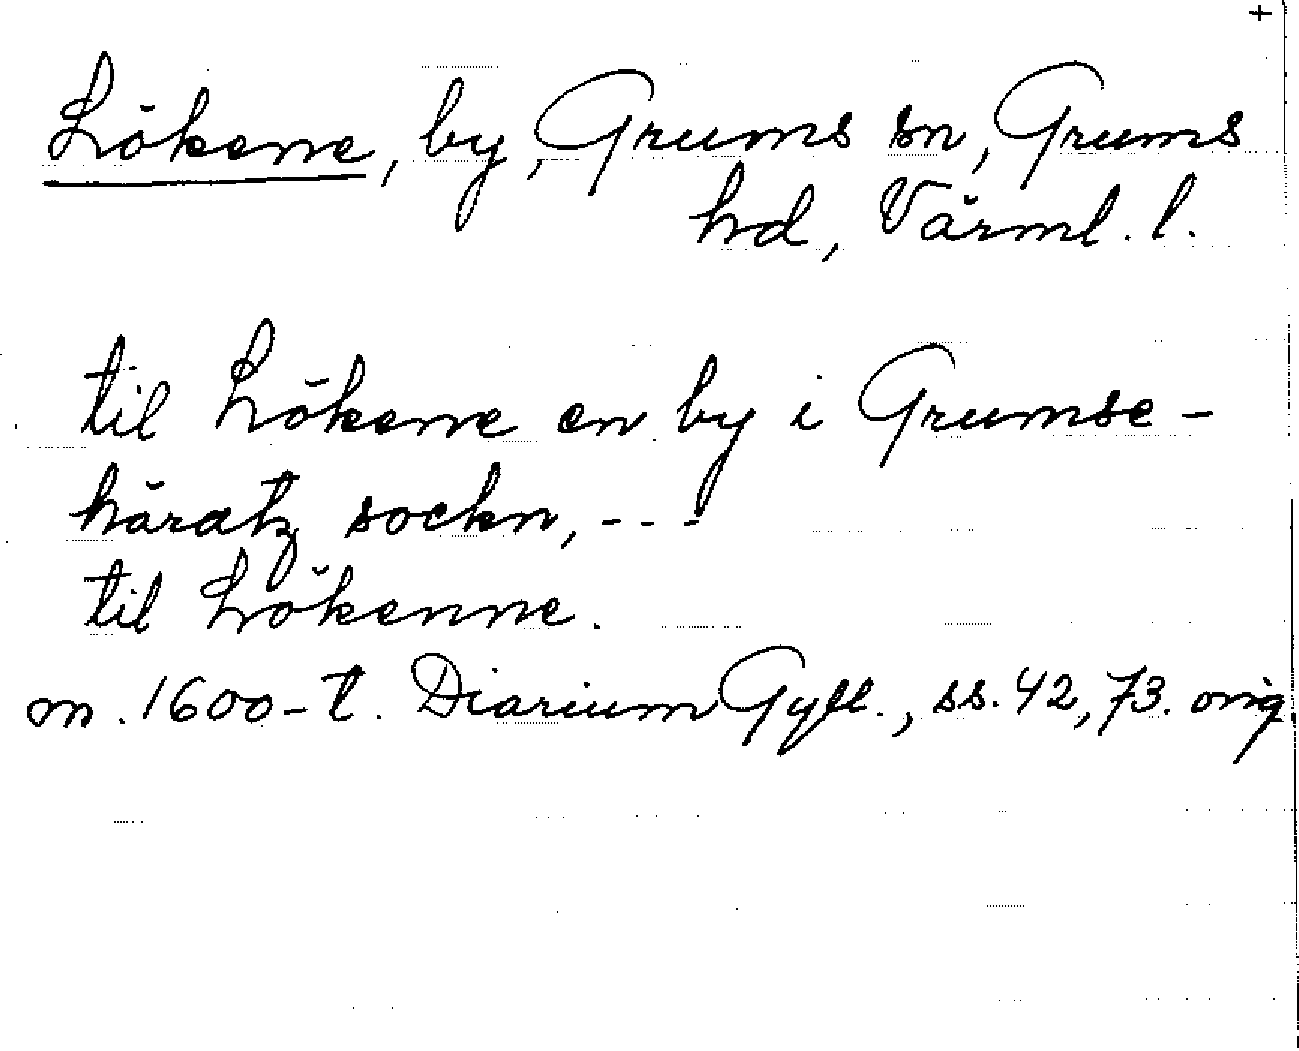 +
Lökene, by, Grums sn, Grums
hd, Värml. l.
til Lökene en by i Grumse-
häratz sockn, ---
til Lökenne.
m. 1600-t. Diarium Gyll., ss. 42, 73. orig.